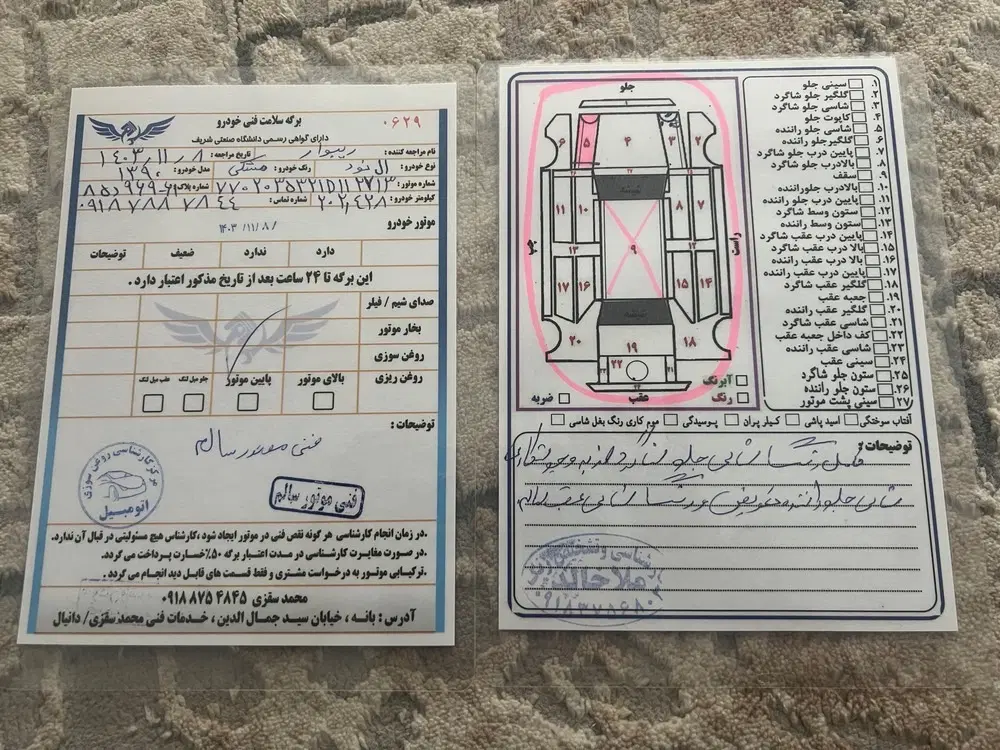 برگه سلامت فنی خودرو
۰۶۲۹
دارای گواهی رسمی دانشگاه صنعتی شریف
نام مراجعه کننده : ریبوار تاریخ مراجعه : ۱۴۰۳/۱۱/۸
نوع خودرو : ال نود رنگ خودرو : مشکی مدل خودرو : ۱۳۹۰
شماره موتور : شماره پلاک :
کیلومتر خودرو : ۲۰۲,۴۲۸ شماره تماس : ۰۹۱۸ ۷۸۸ ۷۸۴۴
موتور خودرو ۱۴۰۳/۱۱/۰۸
دارد ندارد ضعیف توضیحات
این برگه تا ۲۴ ساعت بعد از تاریخ مذکور اعتبار دارد .
صدای شیم / فیلر
بخار موتور
روغن سوزی
روغن ریزی بالای موتور پایین موتور جلو میل لنگ عقب میل لنگ
توضیحات :
فنی موتور سالم
فنی موتور سالم
مرکز کارشناسی روغن سوزی
اتومبیل
.در زمان انجام کارشناسی هر گونه نقص فنی در موتور ایجاد شود ،کارشناس هیچ مسئولیتی در قبال آن ندارد.
.در صورت مغایرت کارشناسی در مدت اعتبار برگه ۵۰٪خسارت پرداخت می گردد.
.ترکیابی موتور به درخواست مشتری و فقط قسمت های قابل دید انجام می گردد .
محمد سقزی ۴۸۴۵ ۸۷۵ ۰۹۱۸
آدرس : بانه ، خیابان سید جمال الدین ، خدمات فنی محمد سقزی/ دانیال
جلو
۱
۶ ۵ ۴ ۳ ۲
۲۷
شیشه
۱۱ ۱۰ ۸ ۷
چپ ۹ راست
۱۳ ۱۲
۱۷ ۱۶ ۱۵ ۱۴
شیشه
۲۰ ۱۹ ۱۸
۲۲
۲۴
عقب
آبرنگ
رنگ
ضربه
۱. سینی جلو
۲. گلگیر جلو شاگرد
۳. شاسی جلو شاگرد
۴. کاپوت جلو
۵. شاسی جلو راننده
۶. گلگیرجلو راننده
۷. پایین درب جلو شاگرد
۸. بالادرب جلو شاگرد
۹. سقف
۱۰. بالادرب جلوراننده
۱۱. پایین درب جلو راننده
۱۲. ستون وسط شاگرد
۱۳. ستون وسط راننده
۱۴. پایین درب عقب شاگرد
۱۵. بالا درب عقب شاگرد
۱۶. بالا درب عقب راننده
۱۷. پایین درب عقب راننده
۱۸. گلگیر عقب شاگرد
۱۹. جعبه عقب
۲۰. گلگیر عقب راننده
۲۱. شاسی عقب شاگرد
۲۲. کف داخل جعبه عقب
۲۳. شاسی عقب راننده
۲۴. سینی عقب
۲۵. ستون جلو شاگرد
۲۶. ستون جلو راننده
۲۷. سینی پشت موتور
آفتاب سوختگی اسید پاشی کیلر پران پوسیدگی موم کاری رنگ بغل شاسی
توضیحات :